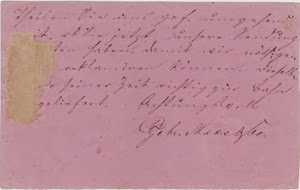 Theilen Sie uns gef. umgehend
ob Sie jetzt unsere Sendung
haben, damit wir nöthigen
reklamiren können. Dieselbe
seiner Zeit richtig zur Bahn
geliefert. Achtungsvoll
Gebr.